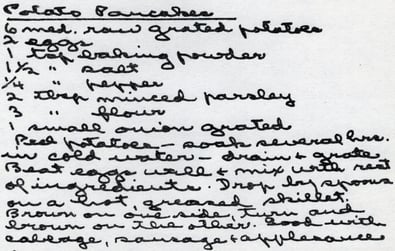 Potato Pancakes
6 med. raw grated potatoes
2 eggs
1 tsp baking powder
1 1/2 " salt
1/4 " pepper
2 tbsp minced parsley
3 " flour
1 small onion grated
Peel potatoes - soak several hrs.
in cold water - drain & grate
Beat eggs well & mix with rest
of ingredients. Drop by spoons
on a hot, greased skillet.
Brown on one side, turn and
brown on the other. Good with
cabbage, sausage & applesauce